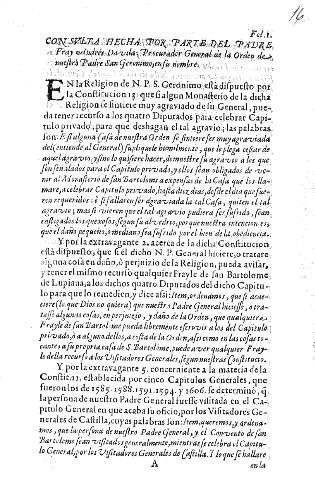 16
Fol. 1.
CONSVLTA HECHA POR PARTE DEL PADRE
Fray Procurador General de la Orden de
nuestro Padre San Geronimo, en su nombre.
EN la Religion de N. P. S. Geronimo està dispuesto por
la Constitucion 13. que si algun Monasterio de la dicha
Religion se sintiere muy agraviado de su General, pueda
tener recurso a los quatro Diputados para celebrar Capitulo
privado, para que deshagan el tal agravio; las palabras
son: E si alguna Casa de nuestra Orden se sintiere ser muy agraviada
del (entiende al General) supliquele humilmente, que le plega cessar de
aquel agravio, y sino lo quisiere hacer, demuestre su agravio a los que
son señalados para el Capitulo privado, y ellos sean obligados de venir
al Monasterio de San Bartolome a expensas de la Casa que los llamare,
a celebrar Capitulo privado, hasta diez dias, desde el dia que fueren
requeridos: è si fallaren ser agraviada la tal Casa, quiten el tal
agravio; mas si vieren que el tal agravio pudiera ser sufrido, sean
Y por la extravagante 2. acerca de la dicha Constitucion
està dispuesto, que si el dicho N. P. General hiziere, o tratare
alguna cosa en daño, ò perjuizio de la Religion, pueda avisar,
y tener el mismo recurso qualquier Frayle de san Bartolome
de Lupiana, a los dichos quatro Diputados del dicho Capitulo
para que lo remedien, y dize assi: Item, ordenamos, que si acaeciere
(lo que Dios no quiera) que nuestro Padre General hiziesse, o tratasse
algunas cosas, en perjuyzio, y daño de la Orden, que qualquiera
Frayle de san Bartolome pueda libremente escrivir a los del Capitulo
privado, ò a alguno dellos, a costa de la Orden, assi como en las cosas tocantes
a su propria casa de S. Bartolome, puede aver qualquier Frayle
dellos recurso a los Visitadores Generales, segun nuestras Constituciones.
Y por la extravagante 5. concerniente a la materia de la
Constit. 12. establecida por cinco Capitulos Generales, que
fueron los de 1585. 1588. 1591. 1594. y 1606. se determinò, que
la persona de nuestro Padre General fuesse visitada en el Capitulo
General en que acaba su oficio, por los Visitadores Generales
de Castilla, cuyas palabras son: Item, queremos, y ordenamos,
que la persona de nuestro Padre General, y el Convento de san
Bartolome sean visitados generalmente, mientras se celebra el Capitulo
General, por los Visitadores Generales de Castilla. Y lo que se hallare
A
en la